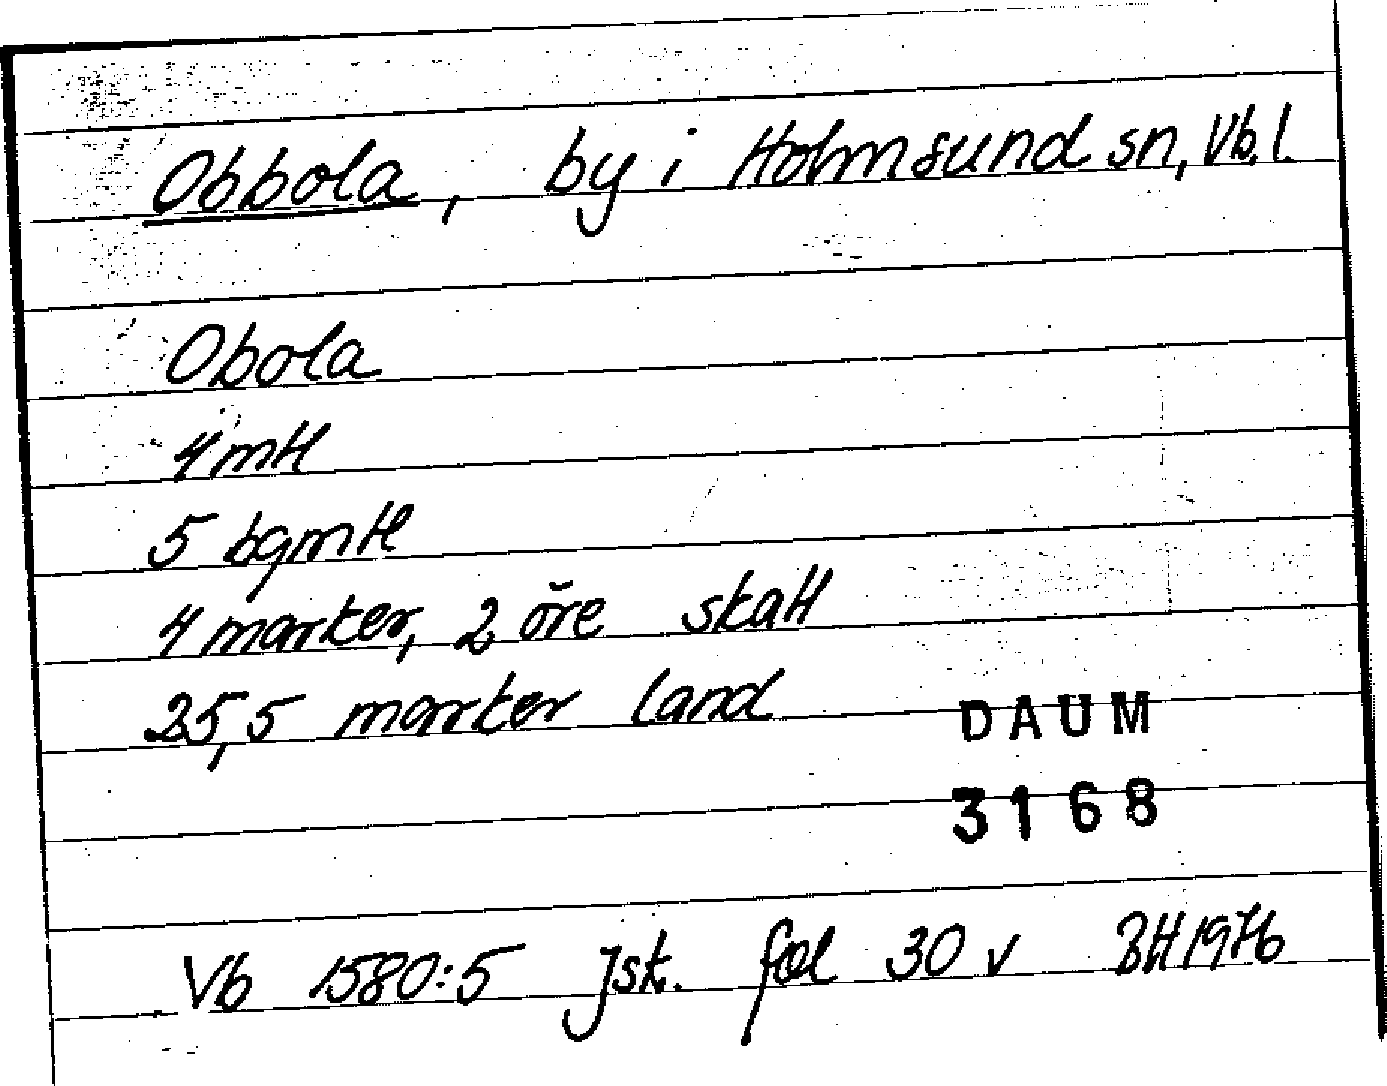 Obbola, by i Holmsund sn, Vb. l.
Obola
4 mtl
5 bgmtl
4 marker, 2 öre skatt
25,5 marker land
DAUM
3168
Vb 1580:5 Jsk. fol 30 v BH 1976